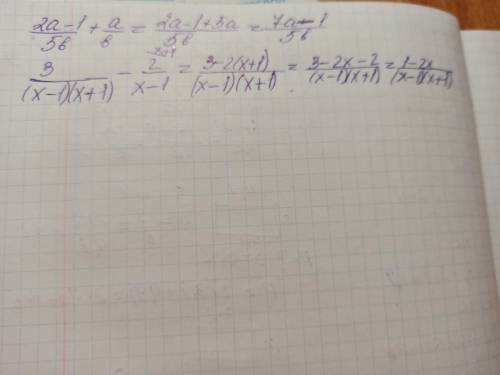 (2a-1)/(5b) + a/b = (2a-1+5a)/(5b) = (7a-1)/(5b)
3/((x-1)(x+1)) - 2^(x+1)/(x-1) = (3-2(x+1))/((x-1)(x+1)) = (3-2x-2)/((x-1)(x+1)) = (1-2x)/((x-1)(x+1))